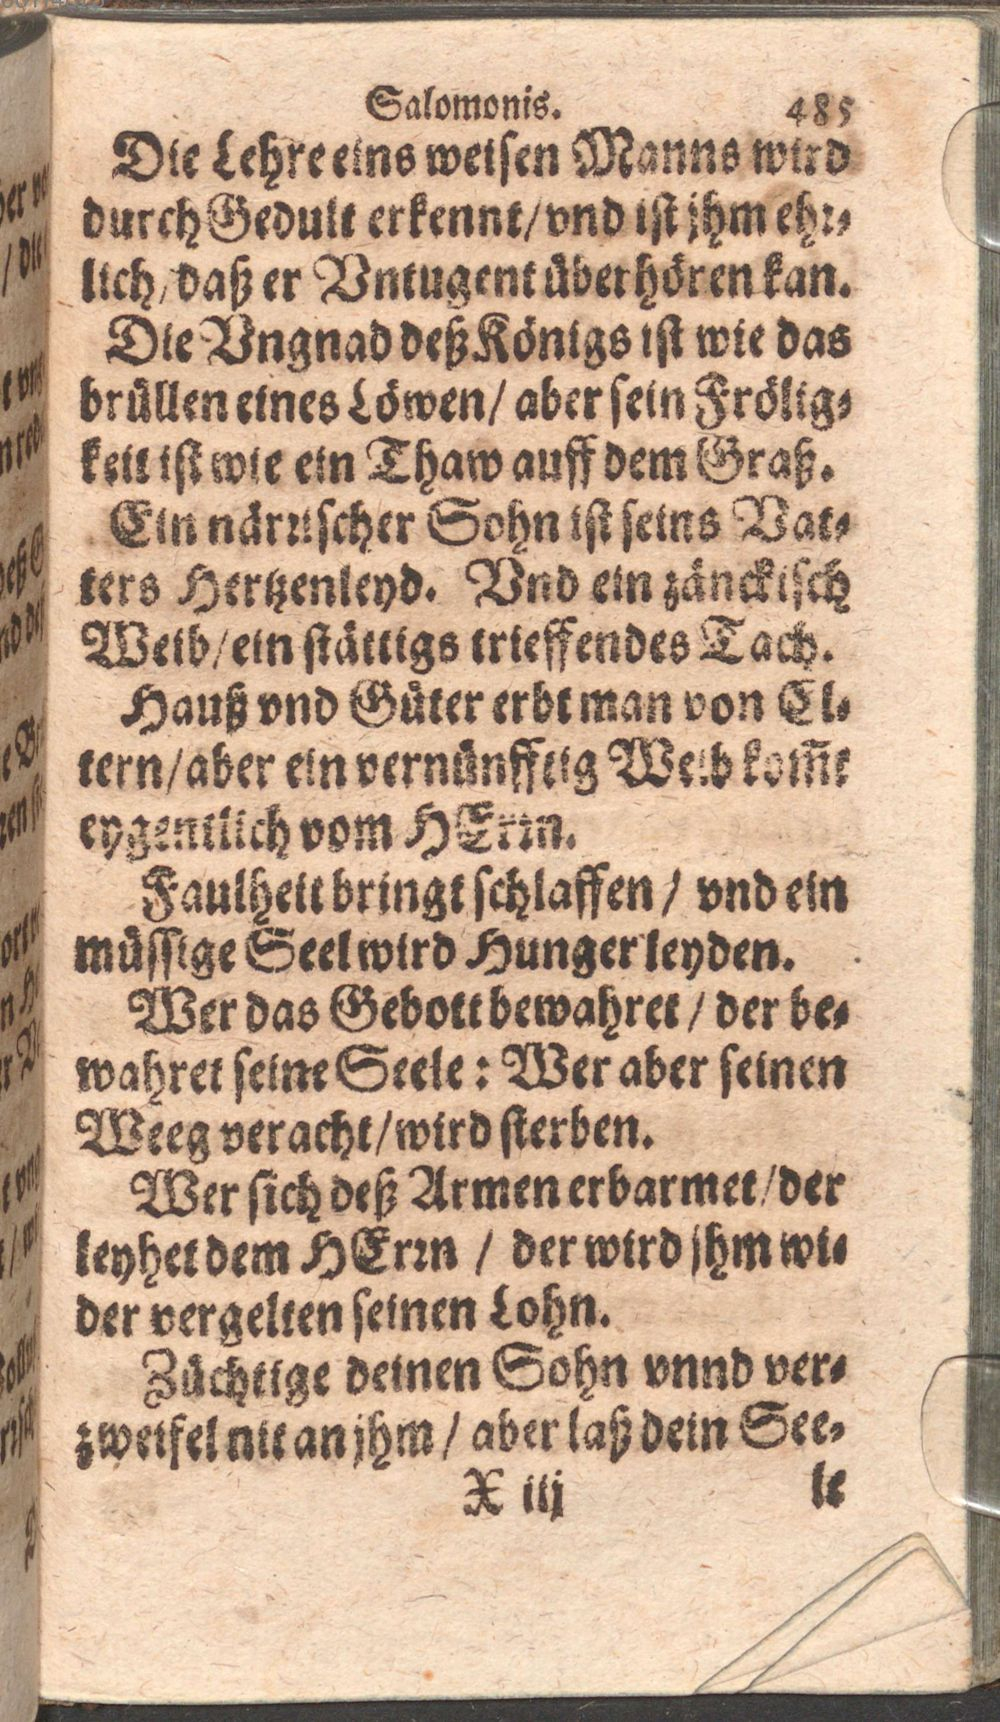 Salomonis. 485
Die Lehre eins weisen Manns wird
durch Gedult erkennt/ vnd ist jhm ehr-
lich/ daß er Vntugent überhören kan.
Die Vngnad deß Königs ist wie das
brüllen eines Löwen/ aber sein Frölig-
keit ist wie ein Thaw auff dem Graß.
Ein närrischer Sohn ist seins Vat-
ters Hertzenleyd. Vnd ein zänckisch
Weib/ ein stättigs trieffendes Tach.
Hauß vnd Güter erbt man von El-
tern/ aber ein vernünfftig Weib kom̃t
eygentlich vom HErrn.
Faulheit bringt schlaffen/ vnd ein
müssige Seel wird Hunger leyden.
Wer das Gebott bewahret/ der be-
wahret seine Seele: Wer aber seinen
Weeg veracht/ wird sterben.
Wer sich deß Armen erbarmet/ der
leyhet dem HErrn / der wird jhm wi-
der vergelten seinen Lohn.
Züchtige deinen Sohn vnnd ver-
zweifel nit an jhm/ aber laß dein See-
X iij le